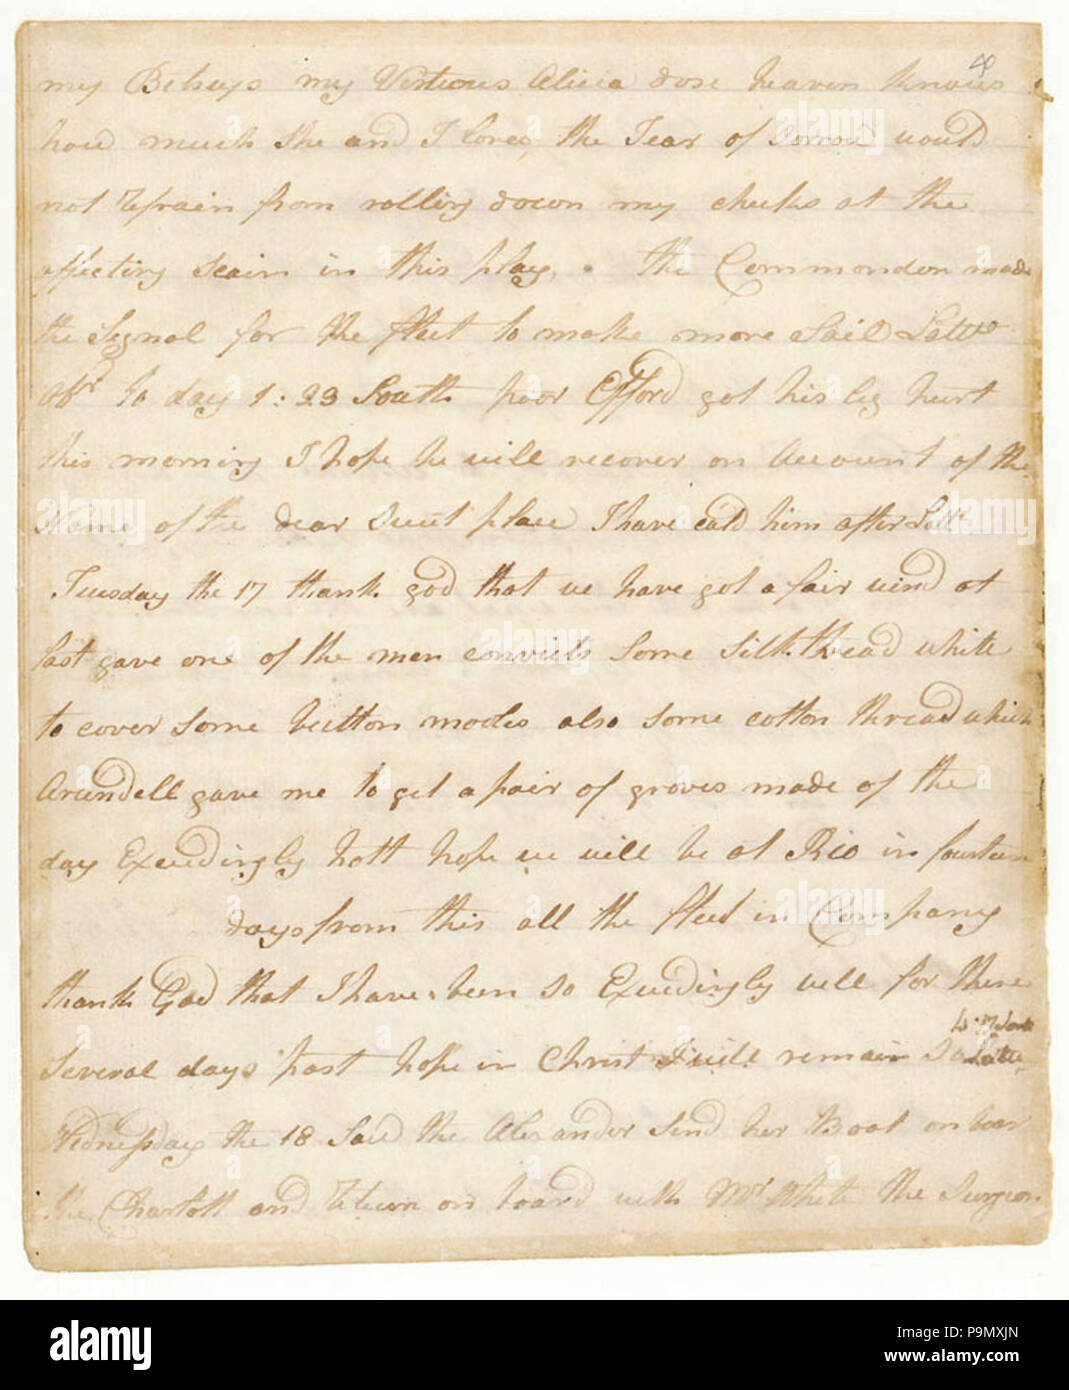 40
my Betseys my Vertuous Alicia dose heaven knows
how much She and I loves, the Tear of Sorrow would
not refrain from rolling down my cheeks at the
affecting Scain in this play, . the Commondon made
the Segnal for the fleet to make more Sail Lattd
obr to day 1:23 South poor Efford got his leg hurt
this morning I hope he will recover on Account of the
Name of the dear Sweet place I have cald him after
Tuesday the 17 thank god that we have got a fair wind at
last gave one of the men convicts Some Silk thread white
to cover Some button modes also some cotton thread which
Arundell gave me to get a pair of groves made of the
day Exeedingly hott hope we will be at Rio in fourteen
days from this all the fleet in Company
thank God that I have been so Exeedingly well for these
Several days past hope in Christ I will remain So
Wednesday the 18 Saw the Alexander Send her Boat on boar
the Charlott and return on board with Mr White the Surgeon
alamy
Image ID: P9MXJN
www.alamy.com